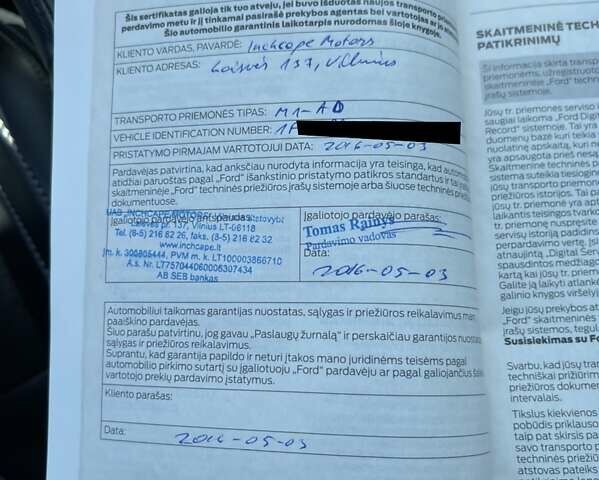 Šis sertifikatas galioja tik tuo atveju, jei buvo išduotas naujos transporto priem
perdavimo metu ir jį tinkamai pasirašė prekybos agentas bei vartotojas ar jo
Šio automobilio garantinis laikotarpis nurodomas šioje knygoje.
KLIENTO VARDAS, PAVARDĖ: Inchcape Motors
KLIENTO ADRESAS: Laisvės 137, Vilnius
TRANSPORTO PRIEMONĖS TIPAS: M1-AD
VEHICLE IDENTIFICATION NUMBER: 1F
PRISTATYMO PIRMAJAM VARTOTOJUI DATA: 2016-05-03
Pardavėjas patvirtina, kad anksčiau nurodyta informacija yra teisinga, kad autom
atidžiai paruoštas pagal „Ford“ išankstinio pristatymo patikros standartus ir tai
skaitmeninėje „Ford“ techninės priežiūros įrašų sistemoje arba šiuose techninės priež
dokumentuose.
Įgaliotojo pardavėjo anspaudas:
UAB „INCHCAPE MOTORS
Laisvės pr. 137, Vilnius LT-06118
Tel. (8-5) 216 62 26, faks. (8-5) 216 62 32
www.inchcape.lt
Įm. k. 300805444, PVM m. k. LT100003866710
A.s. Nr. LT757044060006307434
AB SEB bankas
Įgaliotojo pardavėjo parašas:
Tomas Rainys
Pardavimo vadovas
Data:
2016-05-03
Automobiliui taikomas garantijas nuostatas, sąlygas ir priežiūros reikalavimus man
paaiškino pardavėjas.
Šiuo parašu patvirtinu, jog gavau „Paslaugų žurnalą“ ir perskaičiau garantijos nuostat
sąlygas ir priežiūros reikalavimus.
Suprantu, kad garantija papildo ir neturi įtakos mano juridinėms teisėms pagal
automobilio pirkimo sutartį su įgaliotuoju „Ford“ pardavėju ar pagal galiojančius
vartotojo prekių pardavimo įstatymus.
Kliento parašas:
Data: 2016-05-03
SKAITMENINĖ TECH
PATIKRINIMŲ
Ši informacija skirta transp
priemonėms, užregistruoto
skaitmeninėje „Ford“ techn
įrašų sistemoje.
Jūsų tr. priemonės serviso i
saugiai laikoma „Ford Digit
Record“ sistemoje. Tai yra
duomenų bazė kuri teikia
nuolatinę apskaitą, kuri ne
yra apsaugota prieš nesą
Skaitmeninė techninės p
sistema suteikia tiesiogin
jūsų transporto priemonė
priežiūros istorijos. Tai pa
jūsų tr. priemonė yra apt
laikantis teisingos tvarko
tr. priemonę nuspręsite
servisų istoriją padidins
perpardavimo vertę. Įsi
atnaujintą „Digital Serv
spausdintos medžiagos
kartą kai jūsų tr. priemo
Galite ją laikyti atlankė
galinio knygos viršelyj
Jeigu jūsų prekybos at
„Ford“ skaitmeninėje
įrašų sistemos, tegul
Susisiekimas su Fo
Svarbu, kad jūsų tr
techniškai prižiūrim
priežiūros dokumen
intervalais.
Tikslus kiekvienos
pobūdis priklauso
taip pat skirsis pa
savo transporto p
techninės priežiū
atstovas pateiks